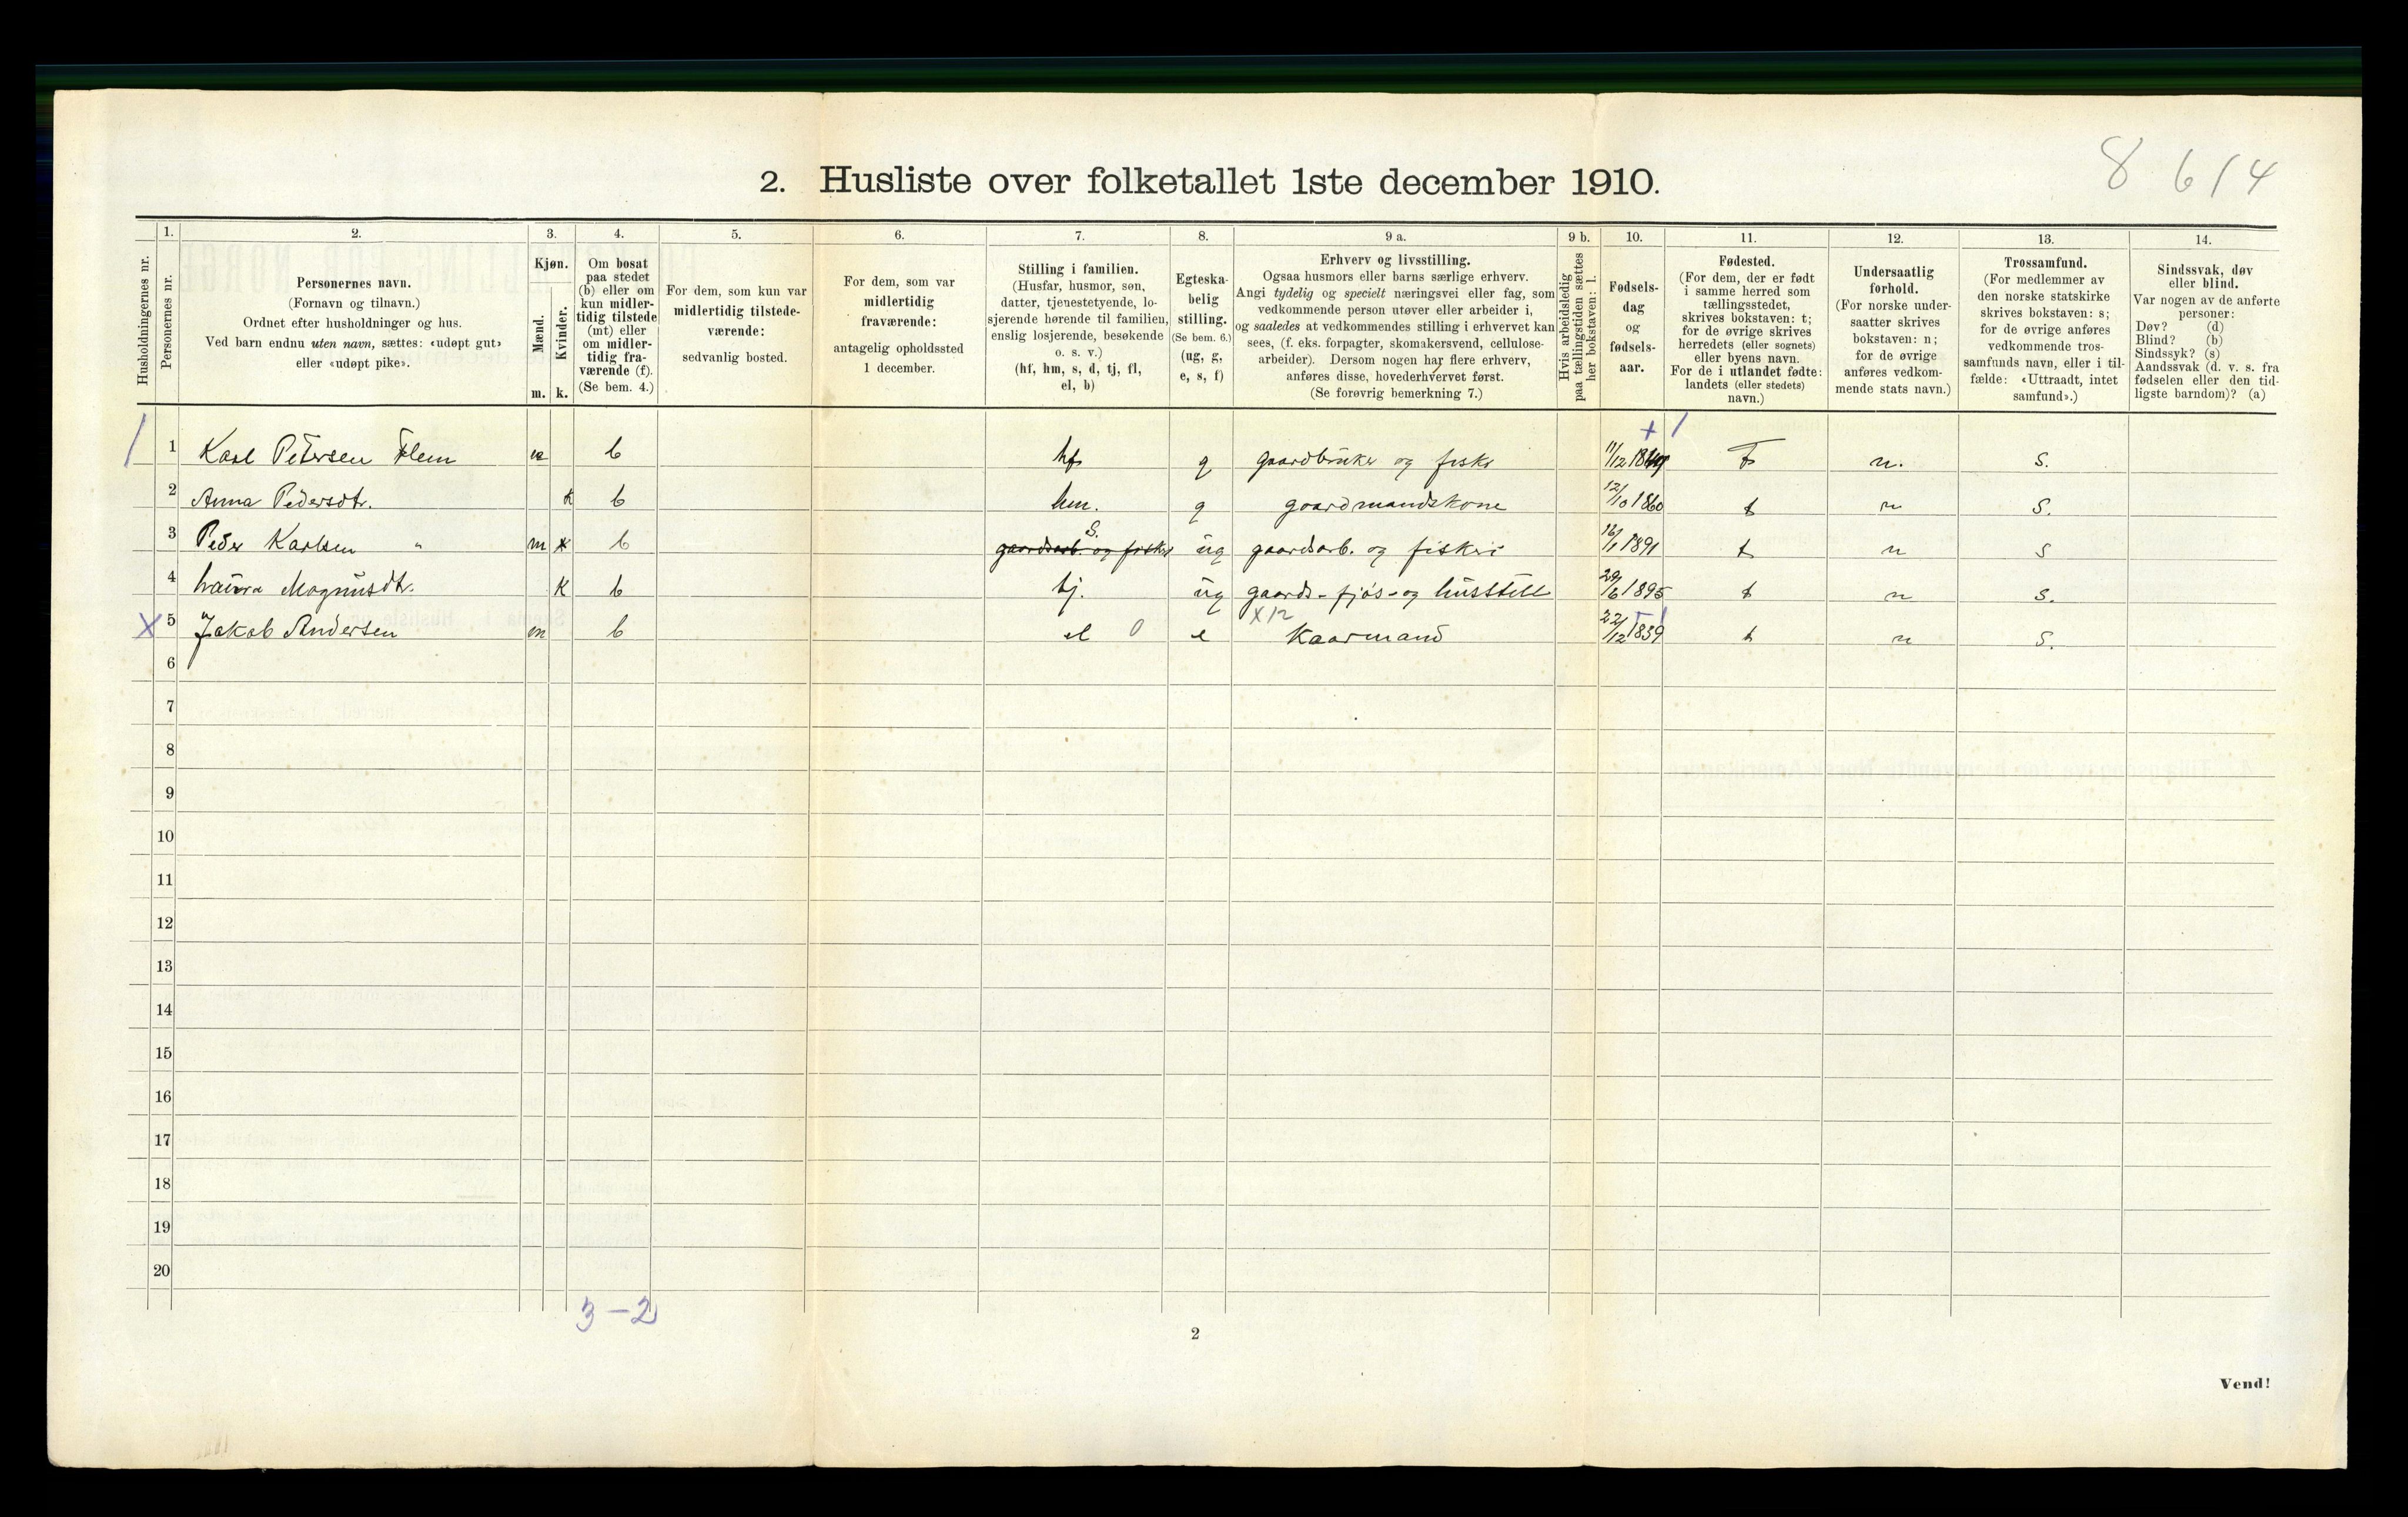 8 614
2. Husliste over folketallet 1ste december 1910.
Husholdningernes nr.
1.
Personernes nr.
2.
Personernes navn.
(Fornavn og tilnavn.)
Ordnet efter husholdninger og hus.
Ved barn endnu uten navn, sættes: «udøpt gut»
eller «udøpt pike».
3.
Kjøn.
Mænd.
Kvinder.
m. k.
4.
Om bosat
paa stedet
(b) eller om
kun midler-
tidig tilstede
(mt) eller
om midler-
tidig fra-
værende (f).
(Se bem. 4.)
5.
For dem, som kun var
midlertidig tilstede-
værende:
sedvanlig bosted.
6.
For dem, som var
midlertidig
fraværende:
antagelig opholdssted
1 december.
7.
Stilling i familien.
(Husfar, husmor, søn,
datter, tjenestetyende, lo-
sjerende hørende til familien,
enslig losjerende, besøkende
o. s. v.)
(hf, hm, s, d, tj, fl,
el, b)
8.
Egteska-
belig
stilling.
(Se bem. 6.)
(ug, g,
e, s, f)
9 a.
Erhverv og livsstilling.
Ogsaa husmors eller barns særlige erhverv.
Angi tydelig og specielt næringsvei eller fag, som
vedkommende person utøver eller arbeider i,
og saaledes at vedkommendes stilling i erhvervet kan
sees, (f. eks. forpagter, skomakersvend, cellulose-
arbeider). Dersom nogen har flere erhverv,
anføres disse, hovederhvervet først.
(Se forøvrig bemerkning 7.)
9 b.
Hvis arbeidsledig
paa tællingstiden sættes
her bokstaven: l.
10.
Fødsels-
dag
og
fødsels-
aar.
11.
Fødested.
(For dem, der er født
i samme herred som
tællingsstedet,
skrives bokstaven: t;
for de øvrige skrives
herredets (eller sognets)
eller byens navn.
For de i utlandet fødte:
landets (eller stedets)
navn.)
12.
Undersaatlig
forhold.
(For norske under-
saatter skrives
bokstaven: n;
for de øvrige
anføres vedkom-
mende stats navn.)
13.
Trossamfund.
(For medlemmer av
den norske statskirke
skrives bokstaven: s;
for de øvrige anføres
vedkommende tros-
samfunds navn, eller i til-
fælde: «Uttraadt, intet
samfund».)
14.
Sindssvak, døv
eller blind.
Var nogen av de anførte
personer:
Døv? (d)
Blind? (b)
Sindssyk? (s)
Aandssvak (d. v. s. fra
fødselen eller den tid-
ligste barndom)? (a)
1 Karl Petersen Flem m b hf g gaardbruker og fisker 11/12 t n. s.
2 Anna Pedersdtr. k b hm. g gaardmandskone 12/10 1860 t n s.
3 Peder Karlsen " m k b gaardsarb og fisker s. ug gaardsarb. og fisker 16/1 1891 t n s
4 Laura Magnusdtr. k b tj. ug gaards- fjøs- og husstell 29/6 1895 t n s.
X 5 Jakob Andersen m b el 0 e X12 Kaarmand 22/12 1839 t n s.
6
7
8
9
10
11
12
13
14
15
16
17
18
19
20
3-2
2
Vend!